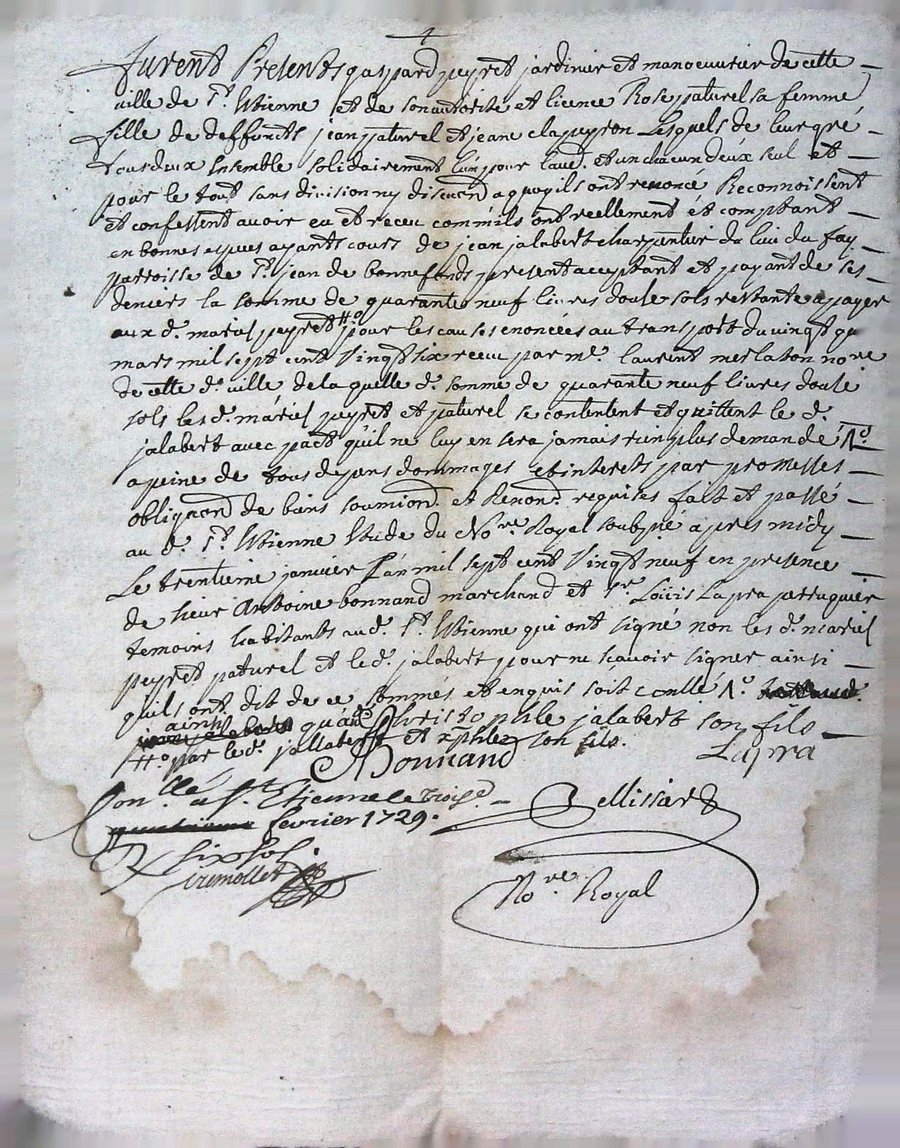 4
Furent Presents gaspard peyret jardinier et manoeuvrier de cette
ville de St. Etienne et de son authorité et licence Rose paturel sa femme
fille de deffuncts jean paturel et jeane clapeyron Lesquels de leur gré
tous deux Ensemble solidairement l'un pour l'autre et un chacun d'eux seul et
pour le tout sans division ny discuon a quoy ils ont renoncé Reconnoissent
et confessent avoir eu et receu comm'ils ont reellement et comptant
en bonnes espues ayants cours de jean jalabert charpentier du lieu du fay
parroisse de St. jean de bonnefonds present acceptant et payant de ses
deniers la somme de quarante neuf livres douse sols restante a payer
aux d. mariés peyret #o pour les causes enoncées au transport du vingt
mars mil sept cent vingt six receu par me. laurent meslaton nore
de cette d. ville de laquelle d. somme de quarante neuf livres douse
sols les d. mariés peyret et paturel se contentent et quittent le d.
jalabert avec pact qu'il ne luy en sera jamais rien plus demandé
a peine de tous depens dommages et interets par promesses
obligaond de biens soumiond. et Renond. requises fait et passé
au d. St. Etienne Etude du Nore Royal soubzné apres midy
Le trentieme janvier l'an mil sept cent vingt neuf en presence
de sieur Antoine bonnand marchand et Sr. Loüis Lapra perruquier
temoins habitants au d. St. Etienne qui ont signé non les d. mariés
peyret paturel et le d. jalabert pour ne scavoir signer ainsi
qu'ils ont dit de ce sommés et enquis soit conllé
ainsi christophle jalabert son fils
#o par le d. jallabert et xphle son fils.
Bonnand
Lapra
Conllé a St. Etienne le troise
fevrier 1729.
Tellissard
six sols
cremollet
Nore Royal